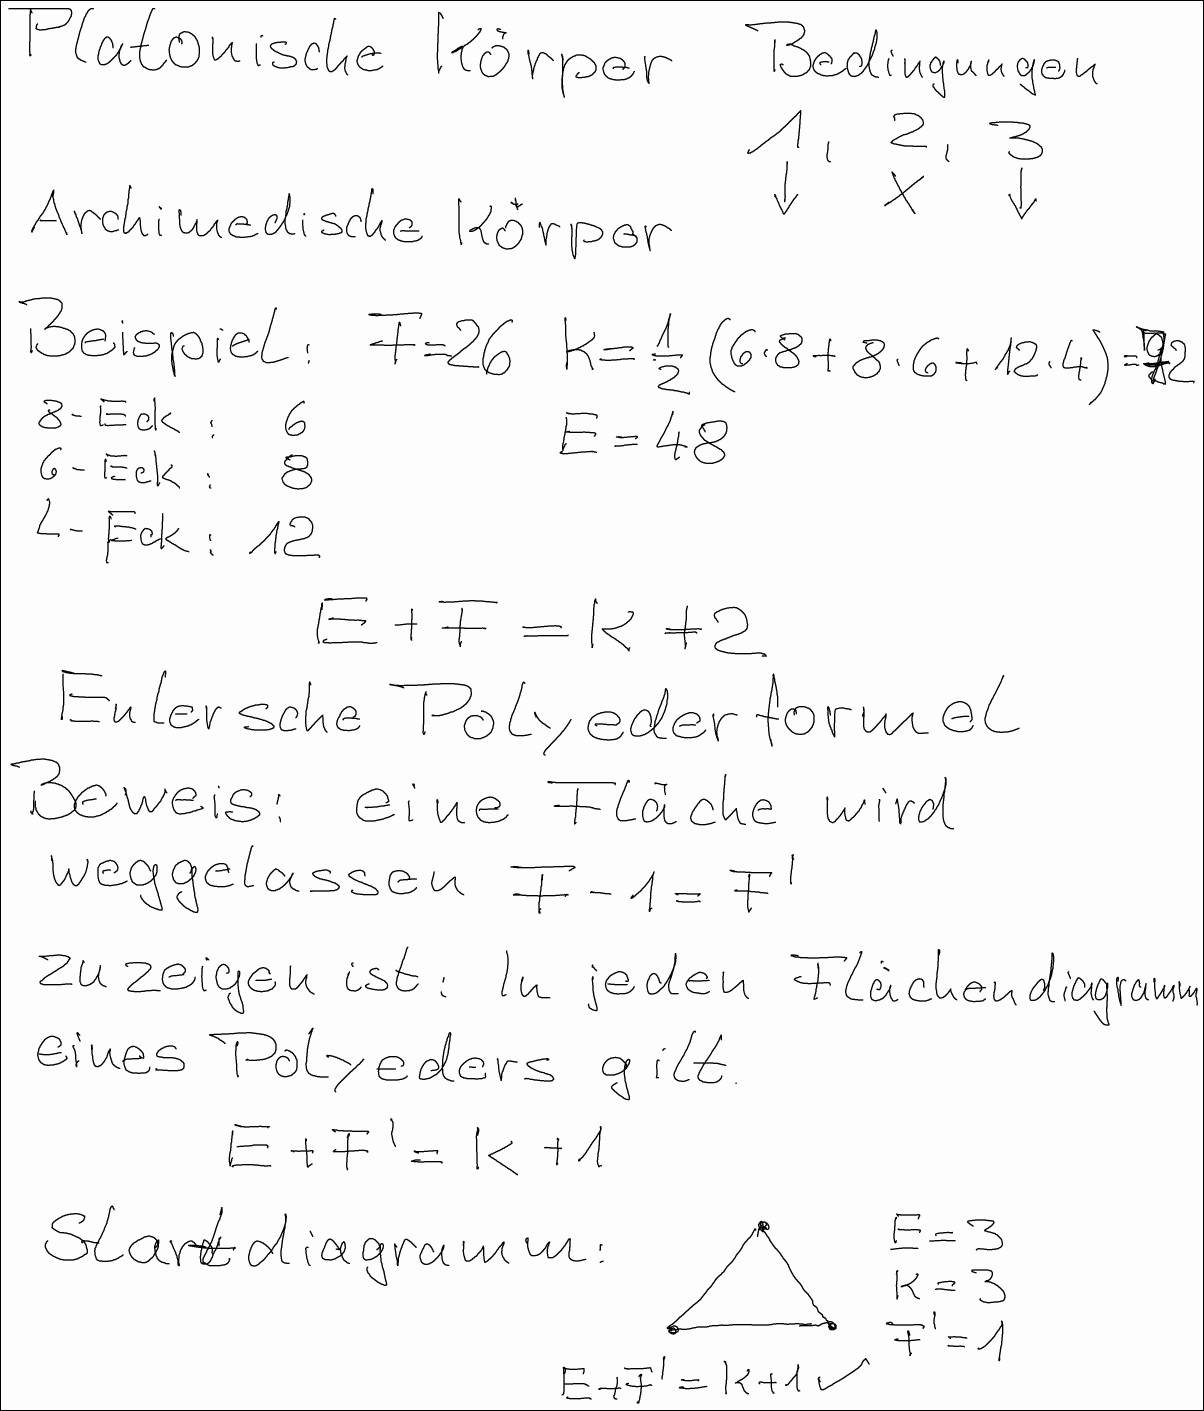 Platonische Körper Bedingungen
1, 2, 3
↓ X ↓
Archimedische Körper
Beispiel: F=26 K=1/2 (6·8+8·6+12·4)=72
8-Eck: 6 E=48
6-Eck: 8
4-Eck: 12
E+F=K+2
Eulersche Polyederformel
Beweis: eine Fläche wird
weggelassen F-1=F'
zu zeigen ist: In jeden Flächendiagramm
eines Polyeders gilt.
E+F'=K+1
Startdiagramm: E=3
K=3
F'=1
E+F'=K+1✓